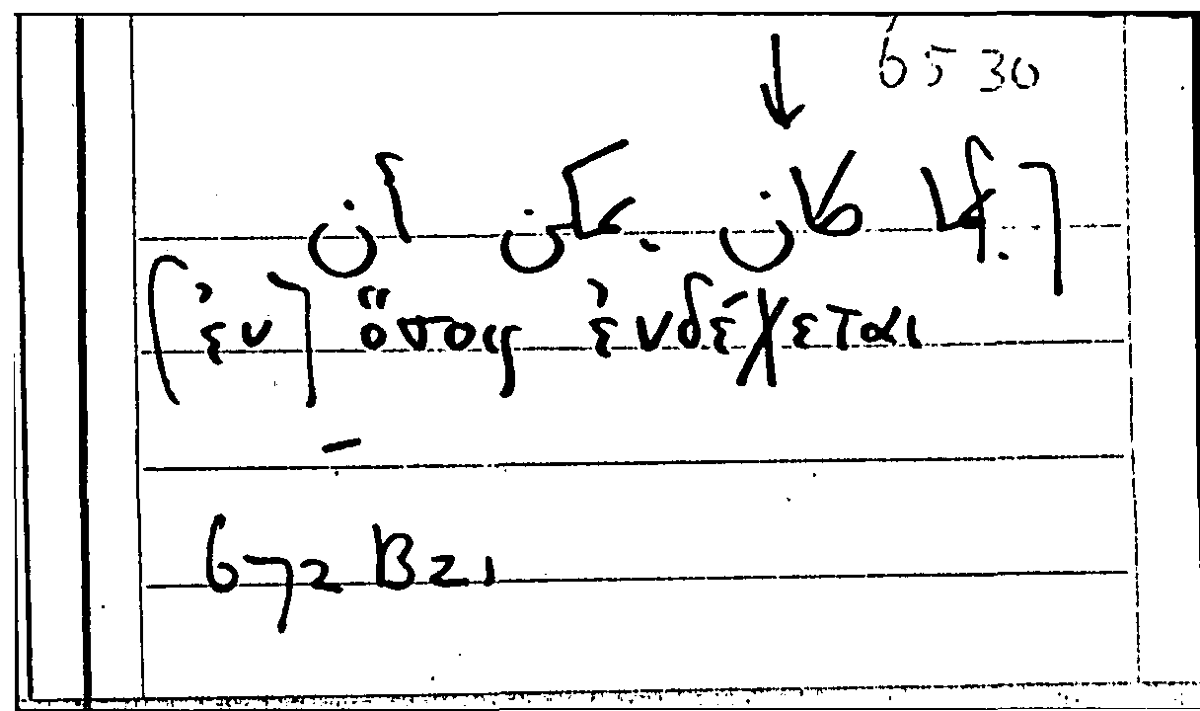 6530
↓
[فيما كان يمكن أن
[ἐν] ὅσοις ἐνδέχεται
672 B 21